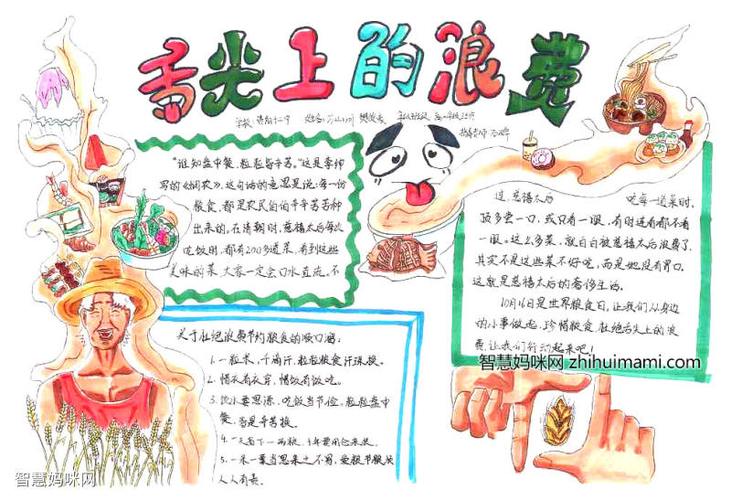 舌尖上的浪费
“谁知盘中餐，粒粒皆辛苦。”这是李绅
写的《悯农》。这句话的意思是说：每一份
粮食，都是农民伯伯辛辛苦苦种
出来的。在清朝时，慈禧太后每次
吃饭时，都有200多道菜，看到这些
美味的菜，大家一定会口水直流，不
过，慈禧太后 吃每一道菜时，
顶多尝一口，或只看一眼，有时连看都不看
一眼。这么多菜，就白白被慈禧太后浪费了。
其实不是这些菜不好吃，而是她没有胃口。
这就是慈禧太后的奢侈生活。
10月16日是世界粮食日，让我们从身边
的小事做起，珍惜粮食，杜绝舌尖上的浪
费，让我们行动起来吧！
智慧妈咪网 zhihuimami.com
关于杜绝浪费节约粮食的顺口溜：
1. 一粒米，千滴汗，粒粒粮食汗珠换。
2. 惜衣有衣穿，惜饭有饭吃。
3. 饮水要思源，吃饭当节俭，粒粒盘中
餐，皆是辛苦换。
4. 一天省下一两粮，十年要用仓来装。
5. 一米一粟当思来之不易，爱粮节粮从
人人有责。
智慧妈咪网